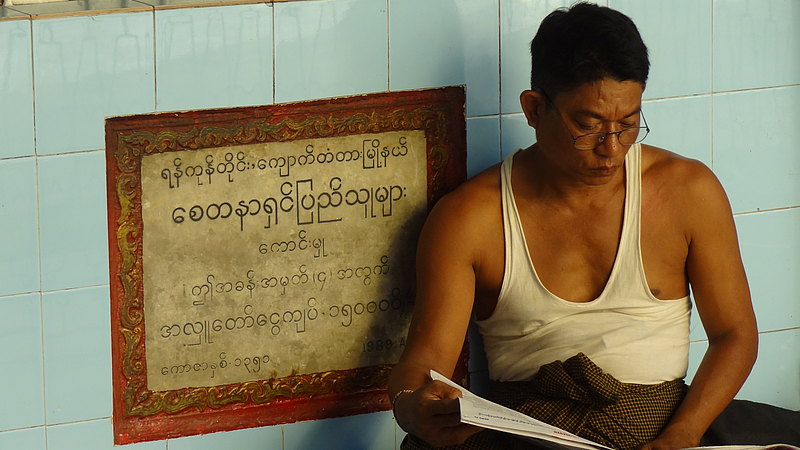 ရန်ကုန်တိုင်း၊ကျောက်တံတားမြို့နယ်
စေတနာရှင်ပြည်သူများ
ကောင်းမှု
ဤအခန်းအမှတ်(၄)အတွက်
အလှူတော်ငွေကျပ်-၁၅၀၀၀ိ/
ကောဇာနှစ်-၁၃၅၁
1989